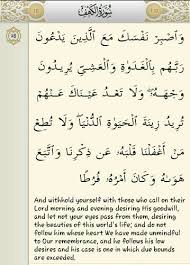 سُورَةُ الكَهْفِ
وَٱصْبِرْ نَفْسَكَ مَعَ ٱلَّذِينَ يَدْعُونَ
رَبَّهُم بِٱلْغَدَوٰةِ وَٱلْعَشِىِّ يُرِيدُونَ
وَجْهَهُۥ ۖ وَلَا تَعْدُ عَيْنَاكَ عَنْهُمْ
تُرِيدُ زِينَةَ ٱلْحَيَوٰةِ ٱلدُّنْيَا ۖ وَلَا تُطِعْ
مَنْ أَغْفَلْنَا قَلْبَهُۥ عَن ذِكْرِنَا وَٱتَّبَعَ
هَوَىٰهُ وَكَانَ أَمْرُهُۥ فُرُطًا
And withhold yourself with those who call on their
Lord morning and evening desiring His goodwill,
and let not your eyes pass from them, desiring
the beauties of this world's life; and do not
follow him whose heart We have made unmindful
to Our remembrance, and he follows his low
desires and his case is one in which due bounds
are exceeded.